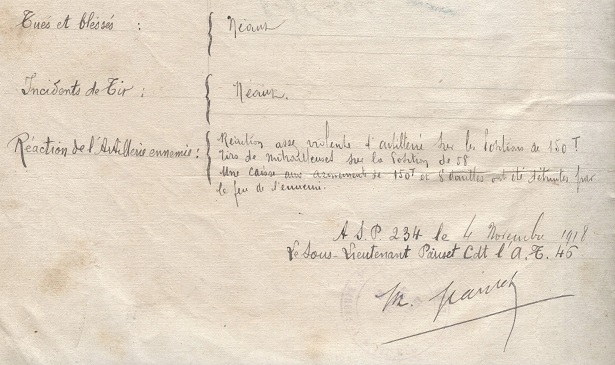 Tués et blessés : Néant
Incidents de Tir : Néant.
Réaction de l'Artillerie ennemie : Réaction assez violente d'artillerie sur les Positions de 150 T
Tirs de mitrailleuses sur la Position de 58
Une caisse aux armement de 150T et 8 douilles ont été détruites par
le feu de l'ennemi.
A S.P. 234 le 4 Novembre 1918
Le Sous-Lieutenant Pariset Cdt l'A.T. 46
M. Pariset